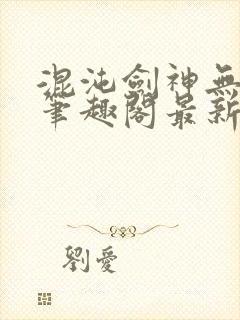 混沌劍神無
筆趣閣最新
劉愛